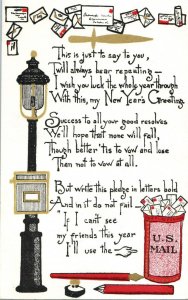 This is just to say to you,
'Twill always bear repeating —
I wish you luck the whole year through
With this, my New Year's Greeting.
Success to all your good resolves
We'll hope that none will fail,
Though better 'tis to vow and lose
Than not to vow at all.
But write this pledge in letters bold
And in it do not fail —
"If I can't see
my friends this year
I'll use the
U.S.
MAIL